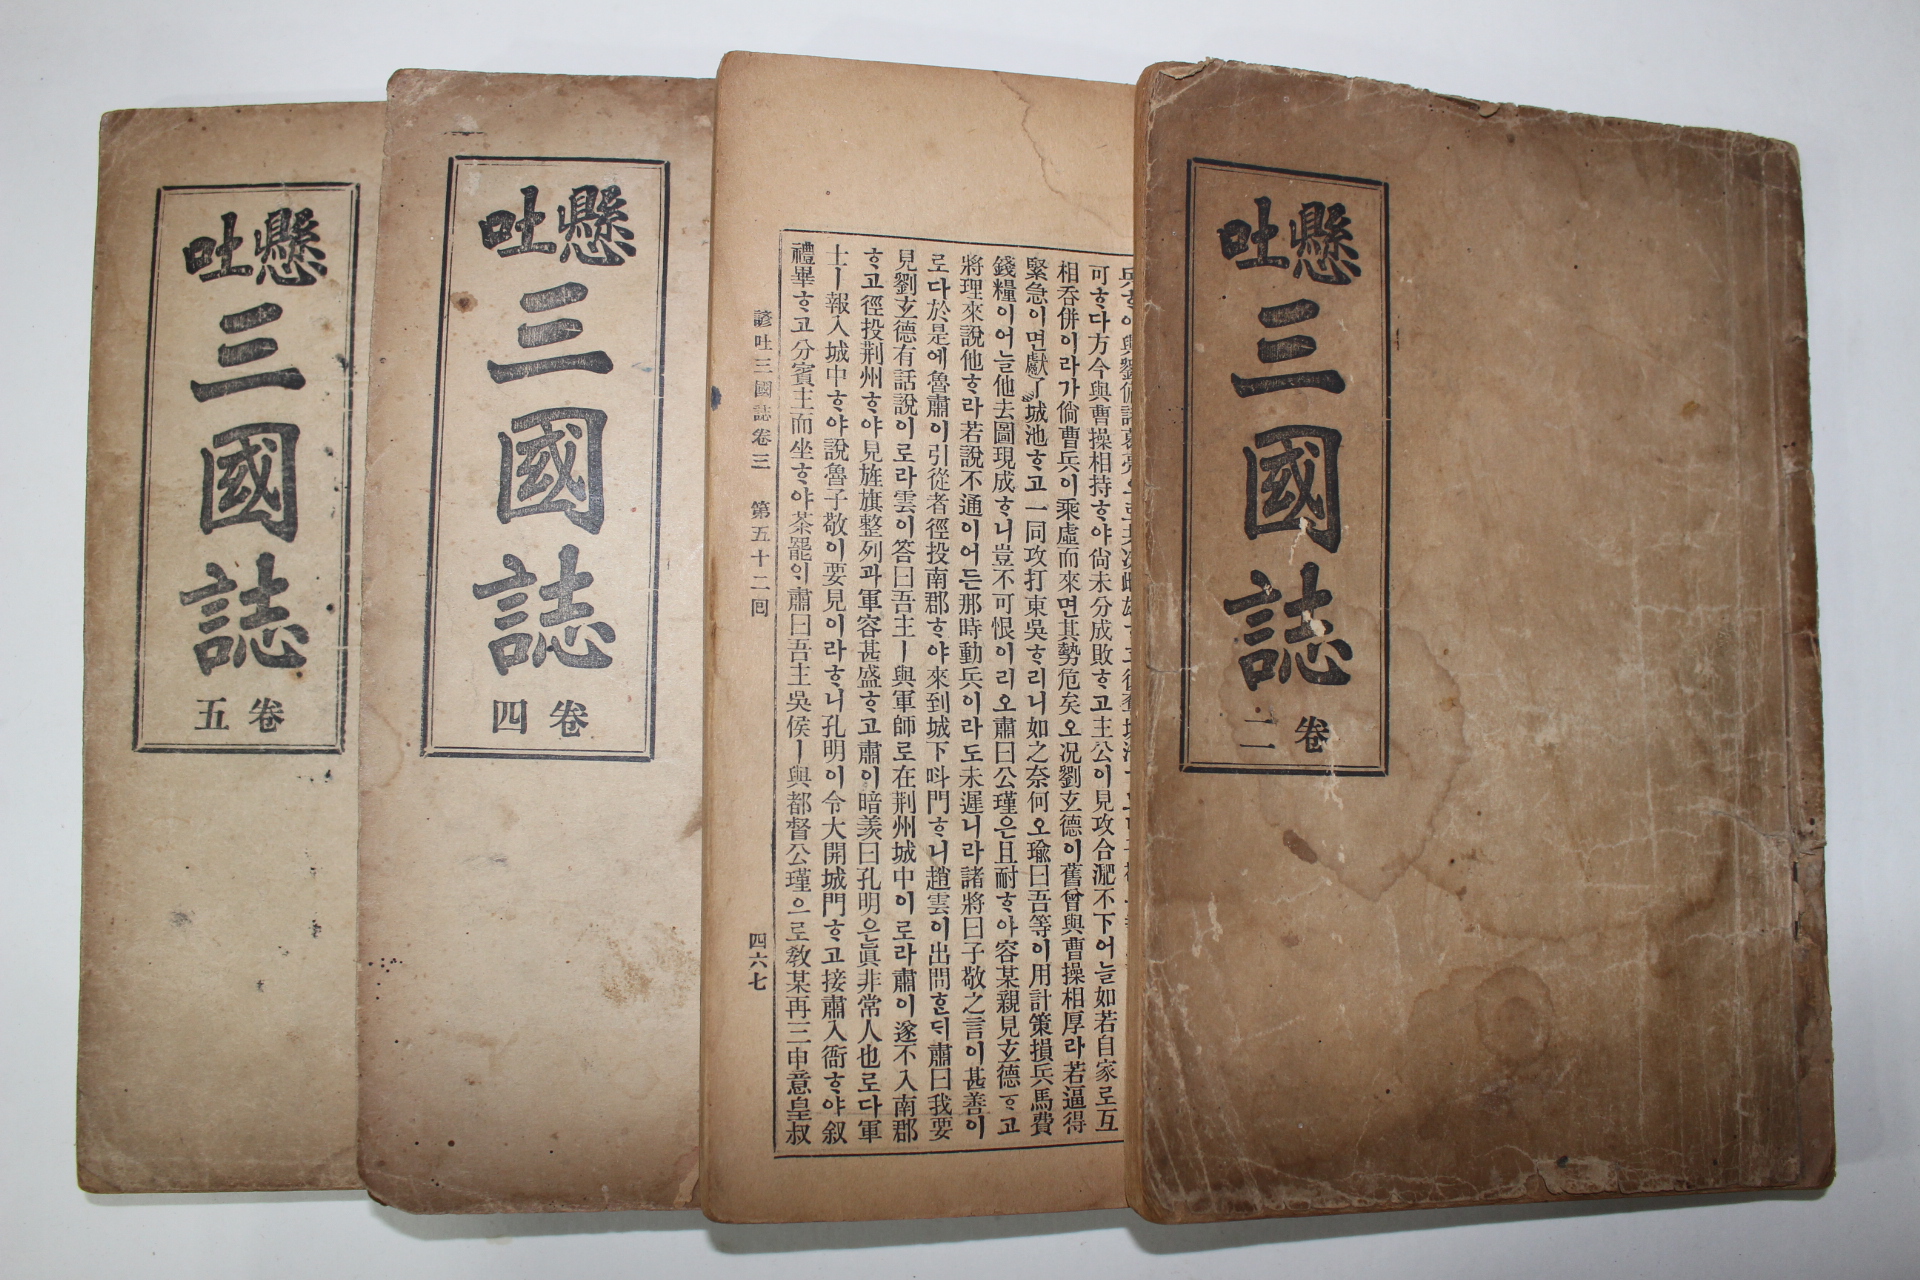 懸吐
三國誌
卷二
可ᄒᆞ다方今與曹操相持ᄒᆞ야尙未分成敗ᄒᆞ고主公이見攻合淝不下어늘如若自家로互
相呑併이라가倘曹兵이乘虛而來면其勢危矣오况劉玄德이舊曾與曹操相厚라若逼得
緊急이면獻了城池ᄒᆞ고一同攻打東吳ᄒᆞ리니如之奈何오瑜曰吾等이用計策損兵馬費
錢糧이어늘他去圖現成ᄒᆞ니豈不可恨이리오肅曰公瑾은且耐ᄒᆞ야容某親見玄德ᄒᆞ고
將理來說他ᄒᆞ라若說不通이어든那時動兵이라도未遲니라諸將曰子敬之言이甚善이
로다於是에魯肅이引從者徑投南郡ᄒᆞ야來到城下叫門ᄒᆞ니趙雲이出問ᄒᆞᆫᄃᆡ肅曰我要
見劉玄德有話說이로라雲이答曰吾主ㅣ與軍師로在荆州城中이로라肅이遂不入南郡
ᄒᆞ고徑投荆州ᄒᆞ야見旌旗整列과軍容甚盛ᄒᆞ고肅이暗羨曰孔明은眞非常人也로다軍
士ㅣ報入城中ᄒᆞ야說魯子敬이要見이라ᄒᆞ니孔明이令大開城門ᄒᆞ고接肅入衙ᄒᆞ야叙
禮畢ᄒᆞ고分賓主而坐ᄒᆞ야茶罷의肅曰吾主吳侯ㅣ與都督公瑾으로敎某再三申意皇叔
諺吐三國誌卷三 第五十二回 四六七
懸吐
三國誌
卷四
懸吐
三國誌
卷五